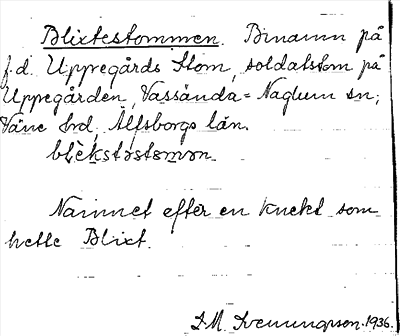 Blixtestommen. Binamn på
f.d. Uppregårds Stom, soldatstom på
Uppregården, Vassända-Naglum sn;
Väne hrd, Älfsborgs län.
blèkstəstomən.
Namnet efter en knekt som
hette Blixt.
S.M. Svenungsson. 1936.